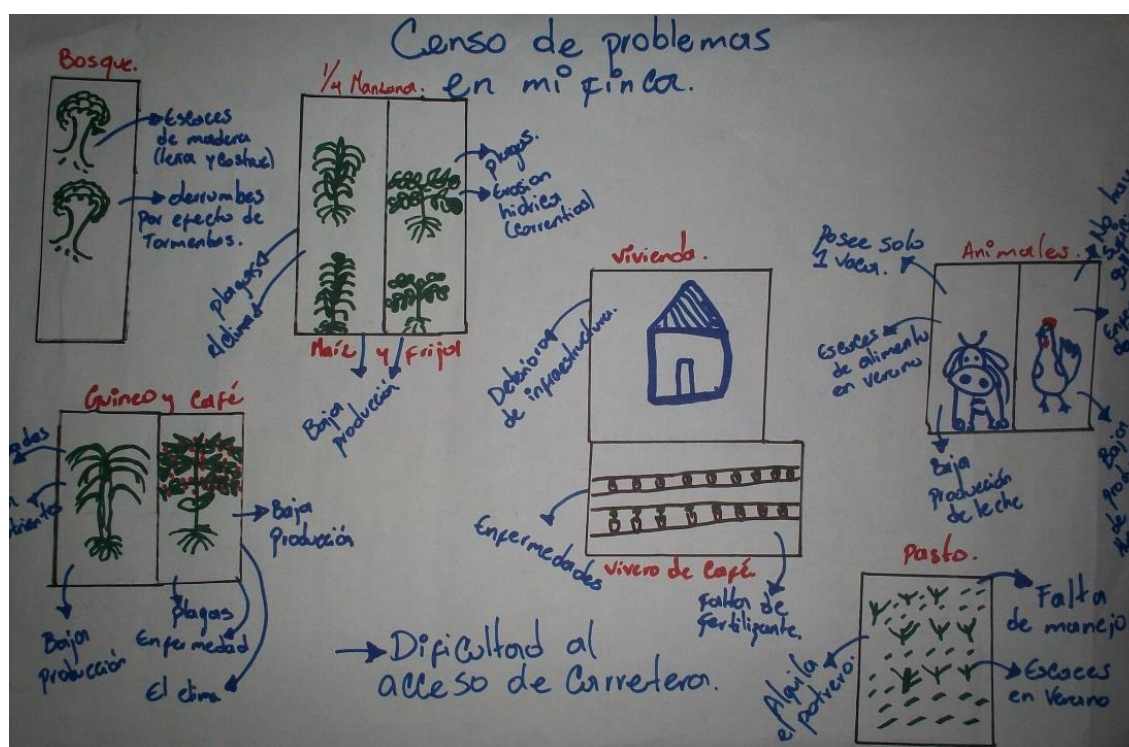 Censo de problemas
en mi finca.
Bosque.
Escoces
de madera
(leña y
derrumbes
por efecto de
Tormentas.
1/4 Manzana.
plagas.
Erosion
hidrica
(correntias)
plagas
el clima
Maíz y Frijol
Baja
producción
Guineo y Café
Baja
producción
Baja
producción
plagas
Enfermedad
El clima
Vivienda.
Deterioro
de infraestructura.
Enfermedades
Vivero de Café.
Falta de
Fertilizante.
Animales.
Posee solo
1 Vaca.
Escoces
de alimento
en verano
Baja
Producción
de leche
No hay
Baja
Pasto.
Falta
de manejo
Escoces
en Verano
Alquila
el potrero.
Dificultad al
acceso de Carretera.